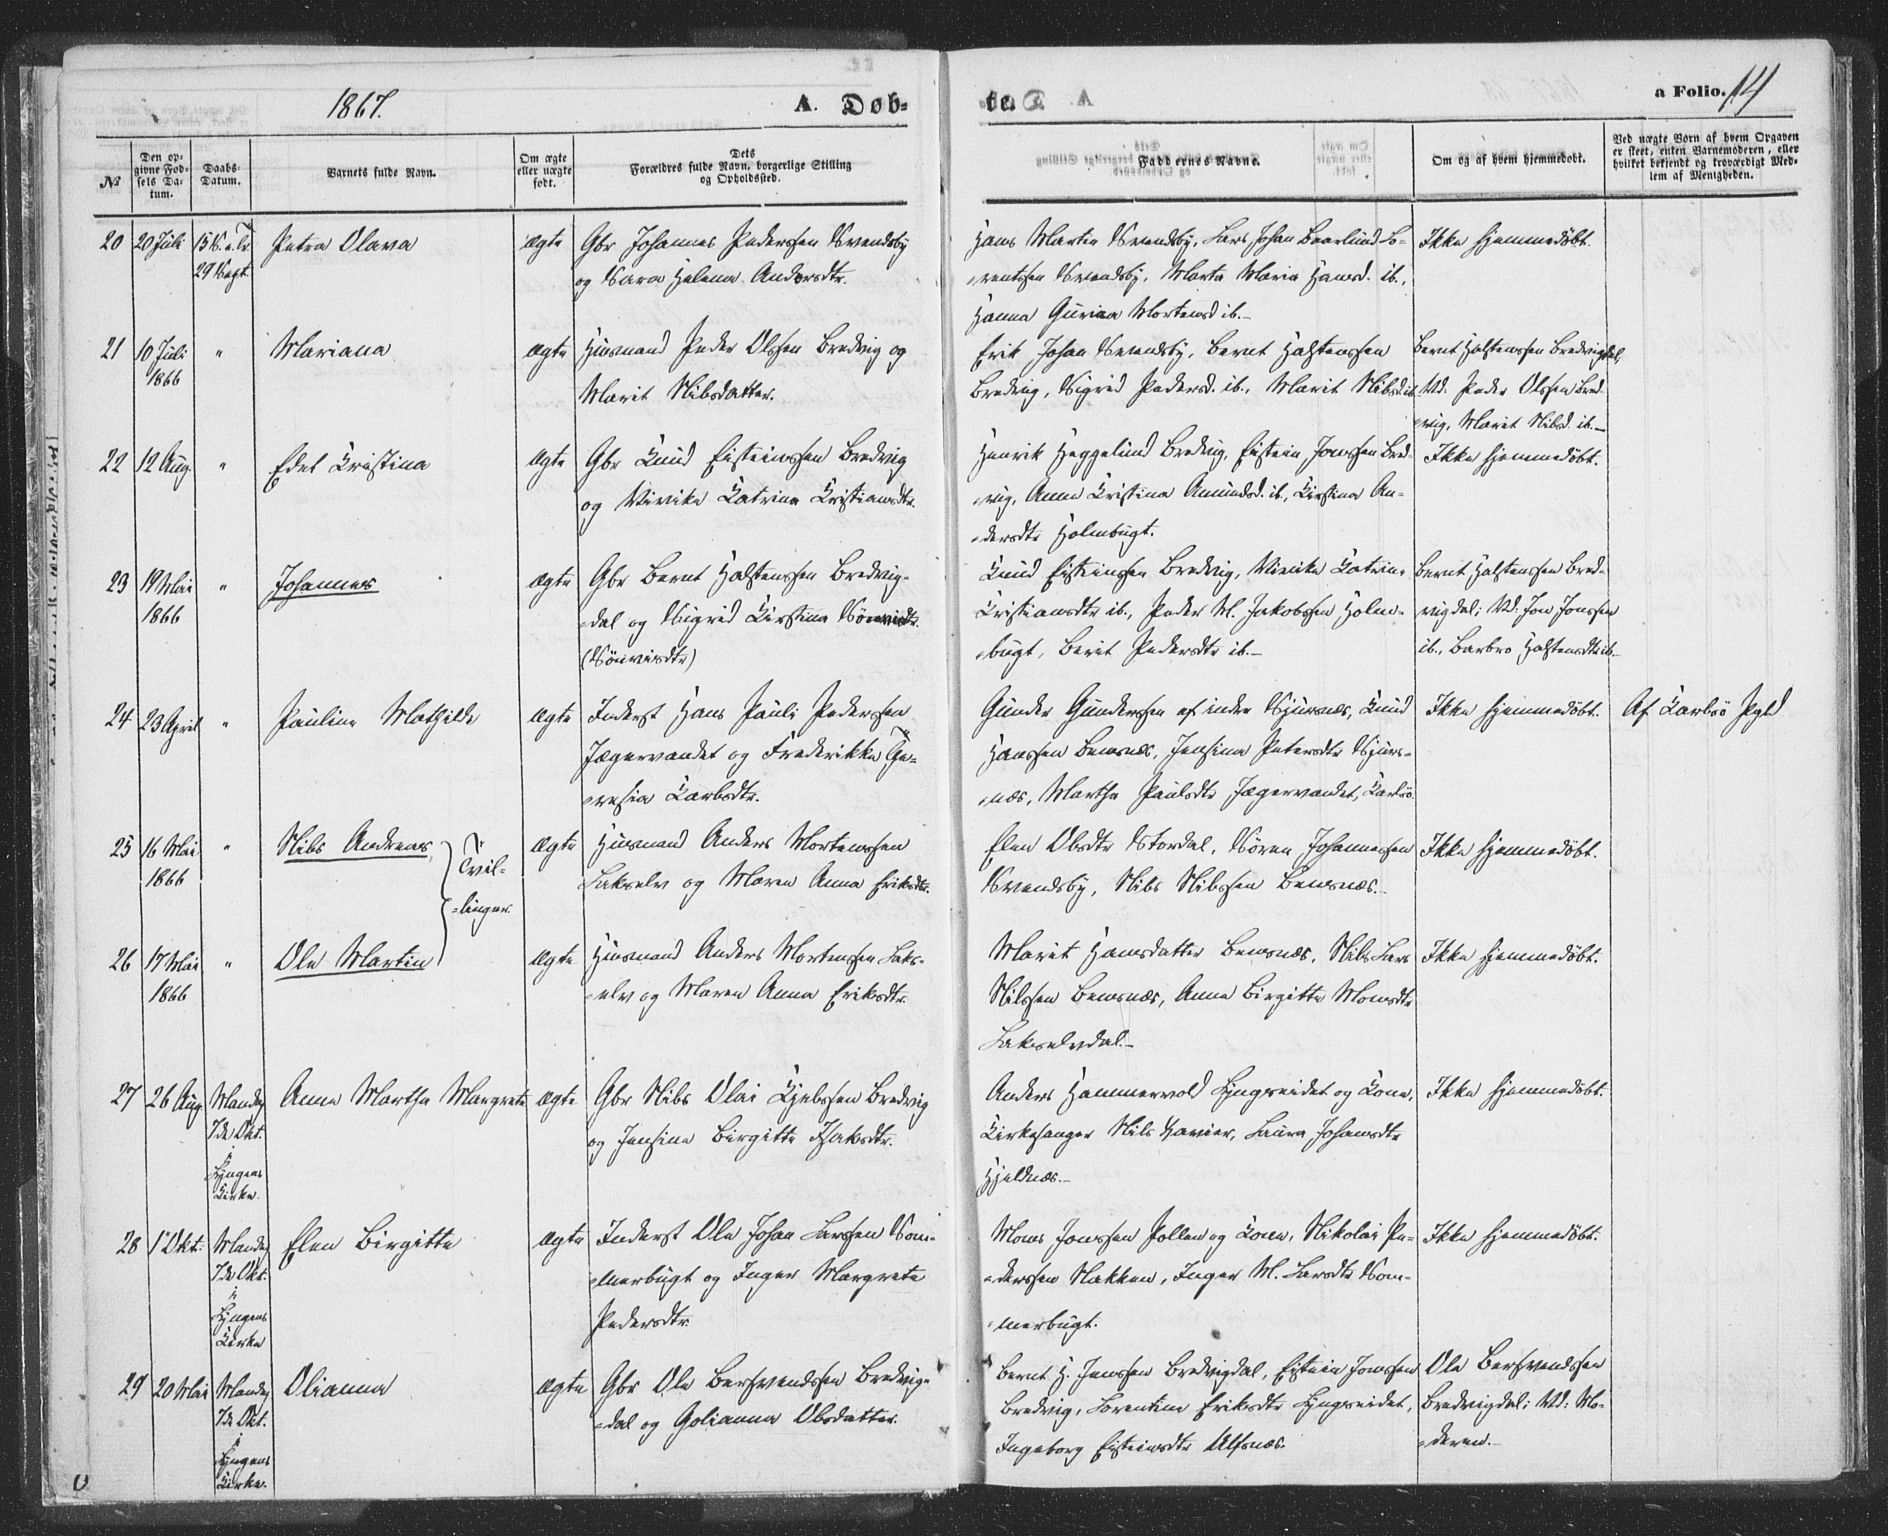 1867.
A. Døb-
te.
a Folio. 14
№
Den op-
givne Fød-
sels Da-
tum.
Daabs-
Datum.
Barnets fulde Navn.
Om ægte
eller uægte
født.
Dets
Forældres fulde Navn, borgerlige Stilling
og Opholdssted.
Faddernes Navne.
Om og af hvem hjemmedøbt.
Ved uægte Børn af hvem Opgaven
er skeet, enten Barnemoderen, eller
hvilket bekjendt og troværdigt Med-
lem af Menigheden.
20 20 Juli 15 S. e. Tr.
29 Septb.
Petra Olava
ægte
Gbr Johannes Pedersen Svendsby
og Sara Helena Andersdtr.
Hans Martin Svendsby, Lars Johan Baarlund Lo-
rentsen Svendsby, Marta Maria Hansd. ib.,
Hanna Gurina Mortensd ib.-
Ikke hjemmedøbt.
21 10 Juli
1866
"
Mariana
ægte
Husmand Peder Olsen Bredvig og
Marit Nilsdatter.
Erik Johan Svendsby, Bernt Halstensen
Bredvig, Sigrid Pedersd. ib., Marit Nilsd. ib.
Bernt Halstensen Bredvigdal,
Vd: Peder Olsen Bred-
vig, Marit Nilsd. ib.-
22 12 Aug
"
Edel Kristina
ægte
Gbr Knud Eisteinsen Bredvig
og Vivike Katrina Kristiansdtr.
Henrik Heggelund Bredvig, Eistein Jonssen Bred-
vig, Anne Kristina Amundsd. ib., Kirstina An-
dersdtr Holmbugt.
Ikke hjemmedøbt.
23 19 Mai
1866
"
Johannes
ægte
Gbr Bernt Halstensen Bredvig-
dal og Sigrid Kirstina
(Sønvisdtr)
Knud Eisteinsen Bredvig, Vivike Katrine
Kristiansdtr ib., Peder M. Jakobsen Holm-
bugt, Berit Pedersdtr ib.-
Bernt Halstensen Bred-
vigdal; Vd: Jon Jonssen
ib., Barbro Halstensdtr ib.-
24 23 April
"
Pauline Mathilde
ægte
Inderst Hans Pauli Pedersen
Jægervandet og Frederikke The-
resia Karlsdtr.
Gunder Gundersen af indre Sjursnæs, Knud
Hanssen Bensnæs, Jensine Petersdtr Sjurs-
næs, Martha Paulsdtr Jægervandet, Karlsø.
Ikke hjemmedøbt.
Af Karlsø Pgld
25 16 Mai
1866
"
Nils Andreas
Tvil-
linger
ægte
Husmand Anders Mortensen
Lakselv og Maren Anna Eriksdtr.
Elen Olsdtr Stordal, Søren Johannessen
Svendsby, Nils Nilssen Bensnæs.
Ikke hjemmedøbt.
26 17 Mai
1866
"
Ole Martin
ægte
Husmand Anders Mortensen Laks-
elv og Maren Anna Eriksdtr
Marit Hansdatter Bensnæs, Nils Lars
Nilssen Bensnæs, Anne Birgitte Monsdtr
Lakselvdal.-
Ikke hjemmedøbt.
27 26 Aug
Mandag
7de Okt.
i
Lyngens
Kirke.
Anne Martha Margrete
ægte
Gbr Nils Olai Kjelssen Bredvig
og Jensine Birgitte Isaksdtr.
Anders Hammervold Lyngseidet og Kone,
Kirkesanger Nils Xavier, Laura Johansdtr
Hjeldnæs.-
Ikke hjemmedøbt.
28 1 Okt.
Mandag
7de Okt.
i
Lyngens
Kirke
Elen Birgitte
ægte
Inderst Ole Johan Larssen Som-
merbugt og Inger Margrete
Pedersdtr
Mons Jonssen Pollen og Kone, Nikolai Pe-
dersen Nakken, Inger M. Larsdtr Som-
merbugt.
Ikke hjemmedøbt.
29 20 Mai
Mandag
7de Okt.
i
Lyngens
Kirke.
Olianna
ægte
Gbr Ole Bersvendsen Bredvig-
dal og Golianna Olsdatter.
Bernt H. Jenssen Bredvigdal, Eistein Jonssen
Bredvig, Lorentine Eriksdtr Lyngseidet,
Ingeborg Eisteinsdtr Ulfsnæs.
Ole Bersvendsen
Bredvigdal; Vd: Mo-
deren.-